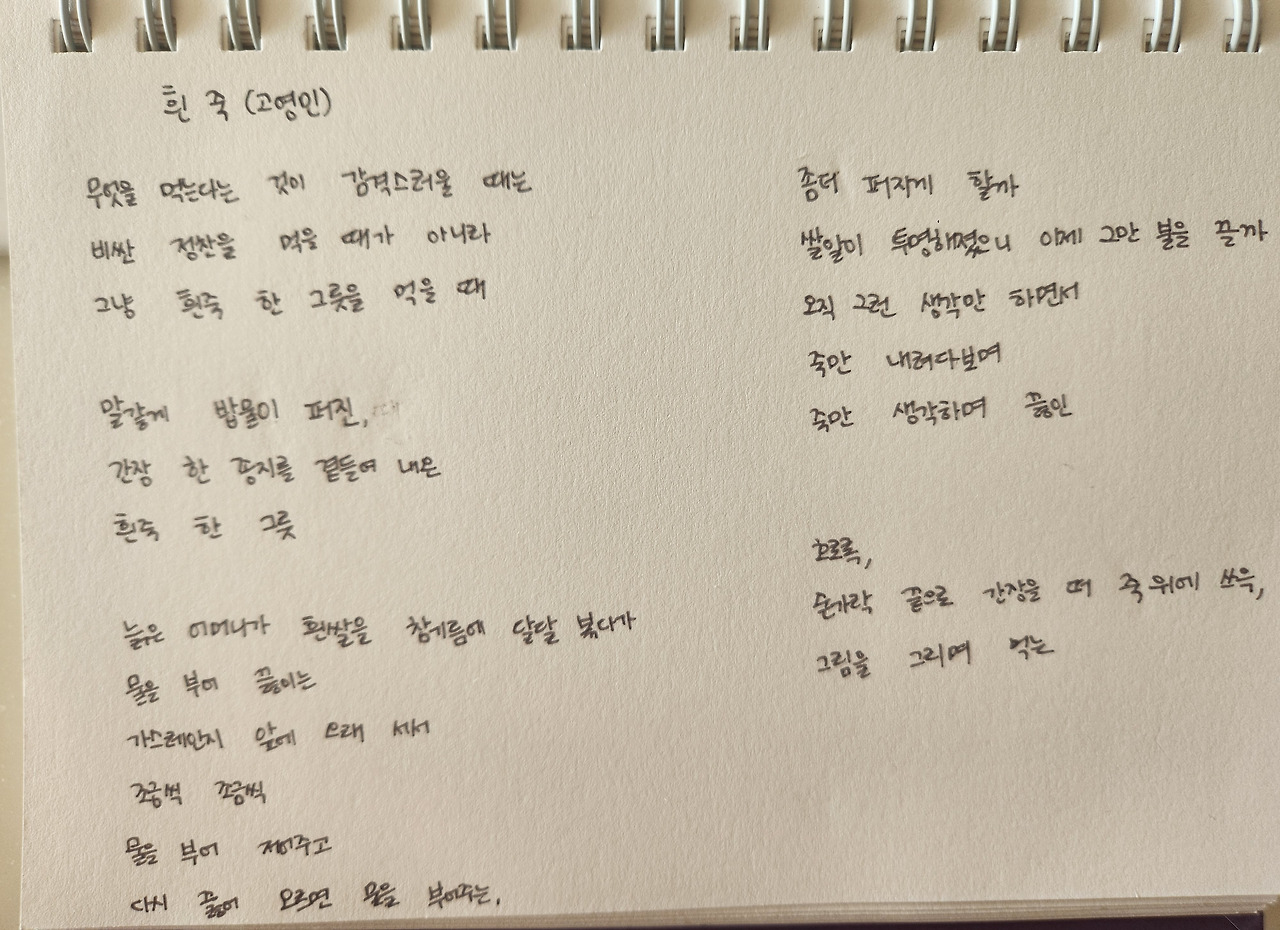 흰 죽 (고영민)
무엇을 먹는다는 것이 감격스러울 때는
비싼 정찬을 먹을 때가 아니라
그냥 흰죽 한 그릇을 먹을 때
말갛게 밥물이 퍼진,
간장 한 종지를 곁들여 내온
흰죽 한 그릇
늙은 어머니가 흰쌀을 참기름에 달달 볶다가
물을 부어 끓이는
가스레인지 앞에 오래 서서
조금씩 조금씩
물을 부어 저어주고
다시 끓어 오르면 물을 부어주는,
좀더 퍼지게 할까
쌀알이 투명해졌으니 이제 그만 불을 끌까
오직 그런 생각만 하면서
죽만 내려다보며
죽만 생각하며 끓인
호로록,
숟가락 끝으로 간장을 떠 죽 위에 쓰윽,
그림을 그리며 먹는